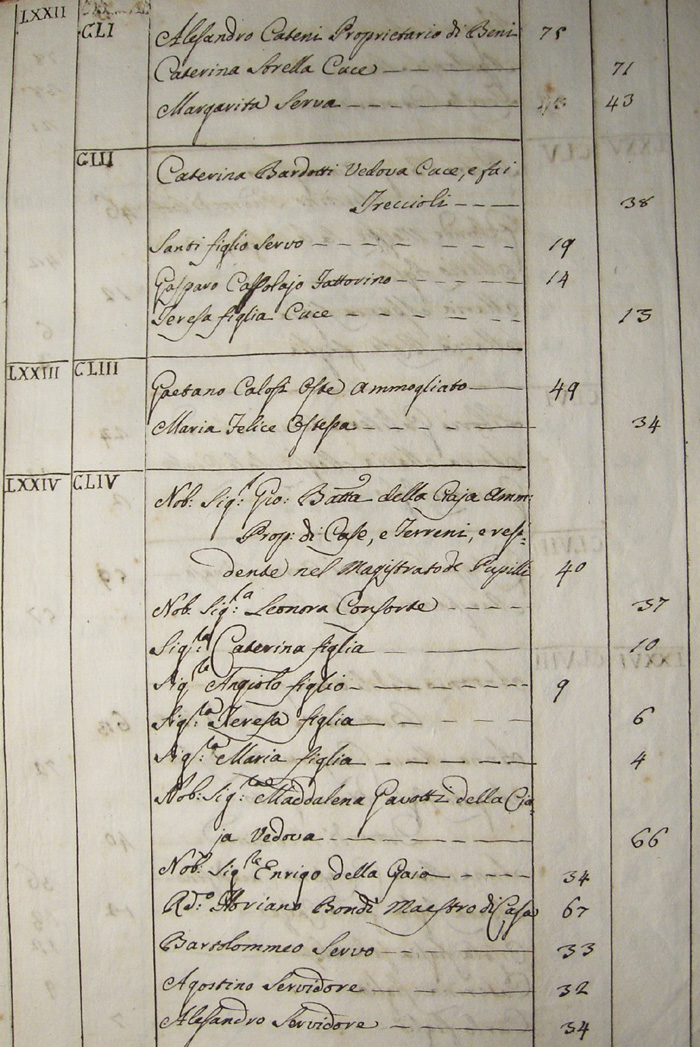 LXXII CLI Alessandro Cateni Proprietario di Beni 75
Caterina Strella Cuce 71
Margarita Serva 43
CLII Caterina Bardotti Vedova Cuce, e fai
Treccioli 38
Santi figlio Servo 19
Gasparo Cassolajo Fattorino 14
Teresa figlia Cuce 13
LXXIII CLIII Gaetano Calosi Oste Ammogliato 49
Maria Felice Ostessa 34
LXXIV CLIV Nob: Sig:r Gio: Batta della Ciaja Amm:
Prop: di Case, e Terreni, e resi-
dente nel Magistrato de Pupilli 40
Nob: Sig:a Leonora Consorte 37
Sig:ra Caterina figlia 10
Sig:re Angiolo figlio 9
Sig:ra Teresa figlia 6
Sig:ra Maria figlia 4
Nob: Sig:ra Maddalena Gavotti della Cia-
ja Vedova 66
Nob: Sig:re Enrigo della Gaia 34
R.do Floriano Bondi Maestro di Casa 67
Bartolommeo Servo 33
Agostino Servidore 32
Alessandro Servidore 34